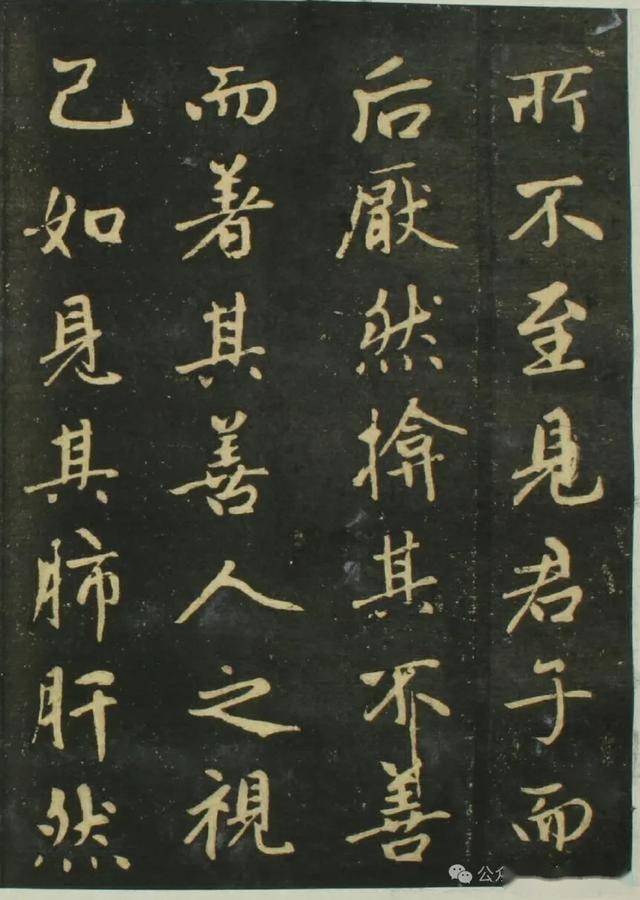 所不至見君子而
后厭然揜其不善
而著其善人之視
己如見其肺肝然
公众